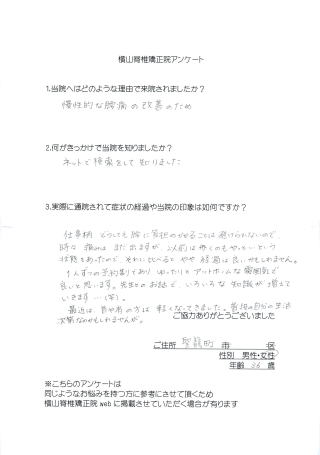 横山脊椎矯正院アンケート
1.当院へはどのような理由で来院されましたか？
慢性的な腰痛の改善のため
2.何がきっかけで当院を知りましたか？
ネットで検索をして知りました
3.実際に通院されて症状の経過や当院の印象は如何ですか？
仕事柄 どうしても腰に負担のかかることは避けられないので
時々 痛みは まだ出ますが、以前は歩くのもやっとという
状態もあったので それに比べると やや 経過は良いかもしれません。
1人ずつの予約制でもあり ゆったりとアットホームな雰囲気で
良いと思います。先生とのお話で、いろいろな 知識が増えて
いきます…(笑)。
最近は 首や肩の方は 軽くなってきました。普段の自分の生活
次第なのかもしれませんが。
ご協力ありがとうございました
ご住所 聖籠町 市 区
性別 男性・女性
年齢 36 歳
※こちらのアンケートは
同じようなお悩みを持つ方に参考にさせて頂くため
横山脊椎矯正院 web に掲載させていただく場合が有ります